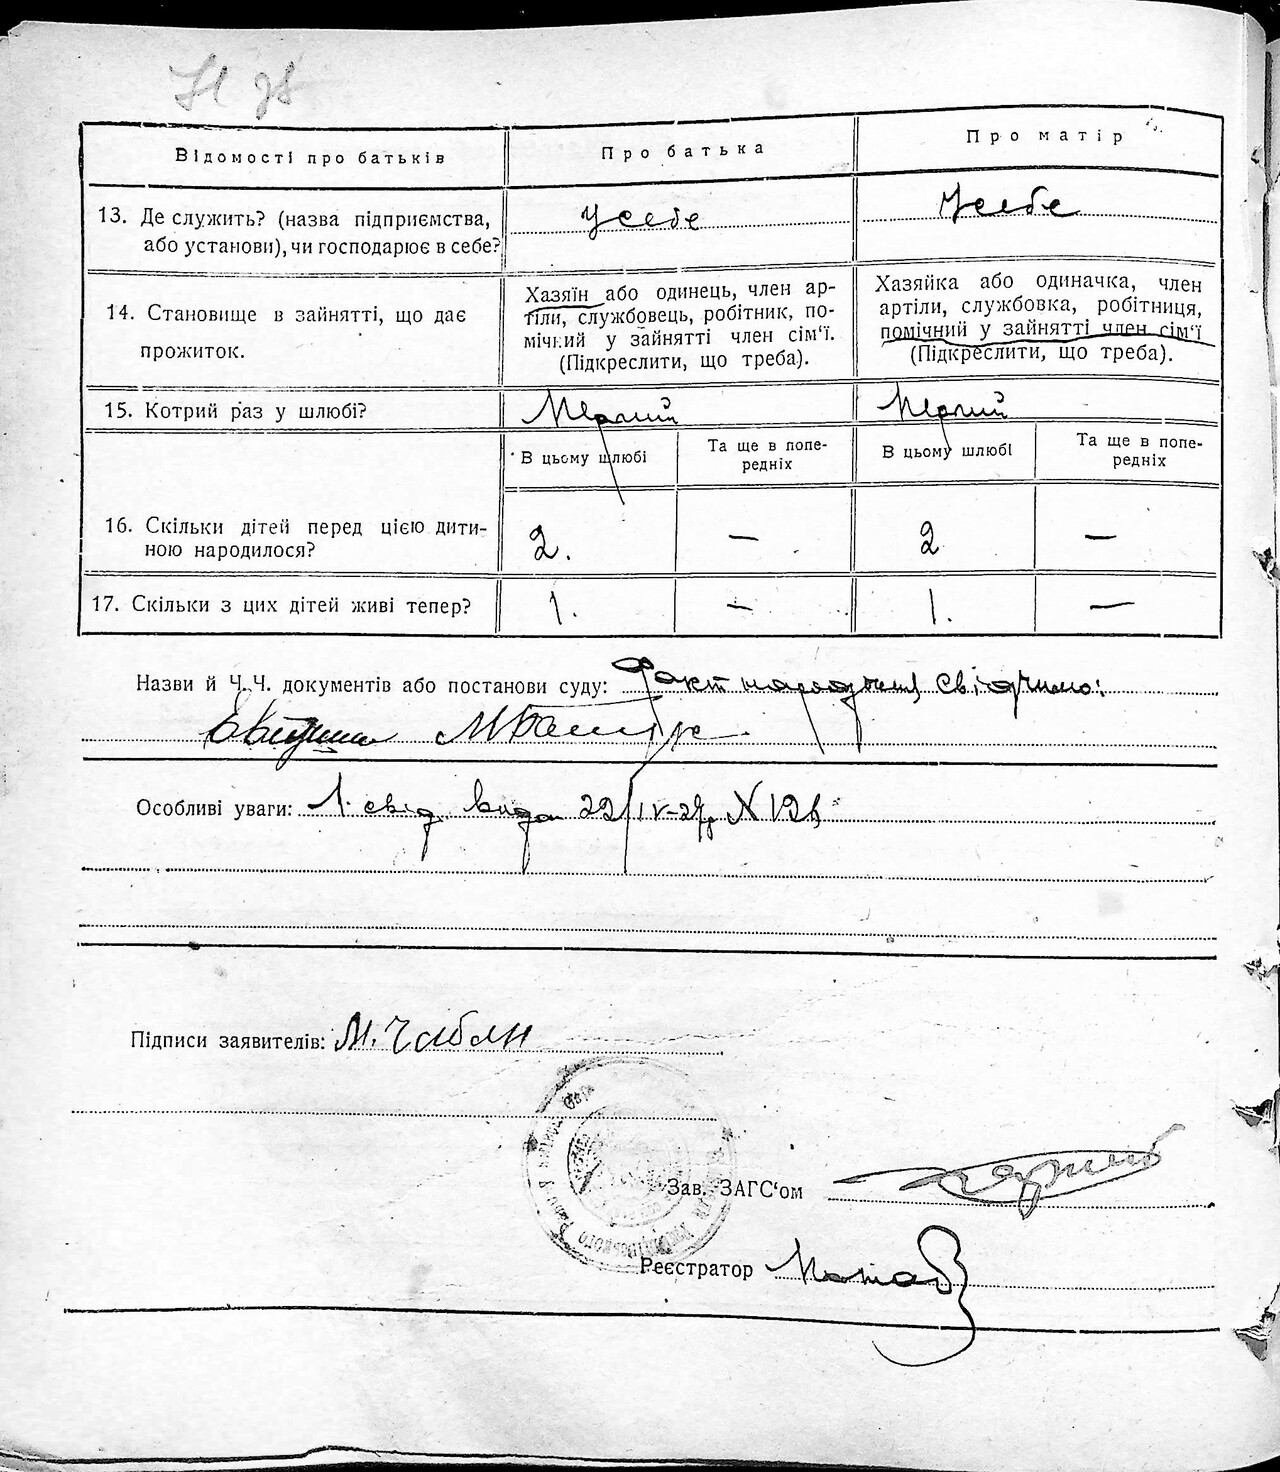 Відомості про батьків
Про батька
Про матір
13. Де служить? (назва підприємства, або установи), чи господарює в себе?
У себе
У себе
14. Становище в зайнятті, що дає прожиток.
Хазяїн або одинець, член ар-
тіли, службовець, робітник, по-
мічний у зайнятті член сім'ї.
(Підкреслити, що треба).
Хазяйка або одиначка, член
артіли, службовка, робітниця,
помічний у зайнятті член сім'ї
(Підкреслити, що треба).
15. Котрий раз у шлюбі?
Перший
Перший
В цьому шлюбі
Та ще в попе-
редніх
В цьому шлюбі
Та ще в попе-
редніх
16. Скільки дітей перед цією дити-
ною народилося?
2. — 2 —
17. Скільки з цих дітей живі тепер?
1. — 1. —
Назви й Ч.Ч. документів або постанови суду: Факт народження свідчимо:
Особливі уваги: свід. видан 22/IV-
Підписи заявителів: М. Чабан
Зав. ЗАГС'ом
Реєстратор